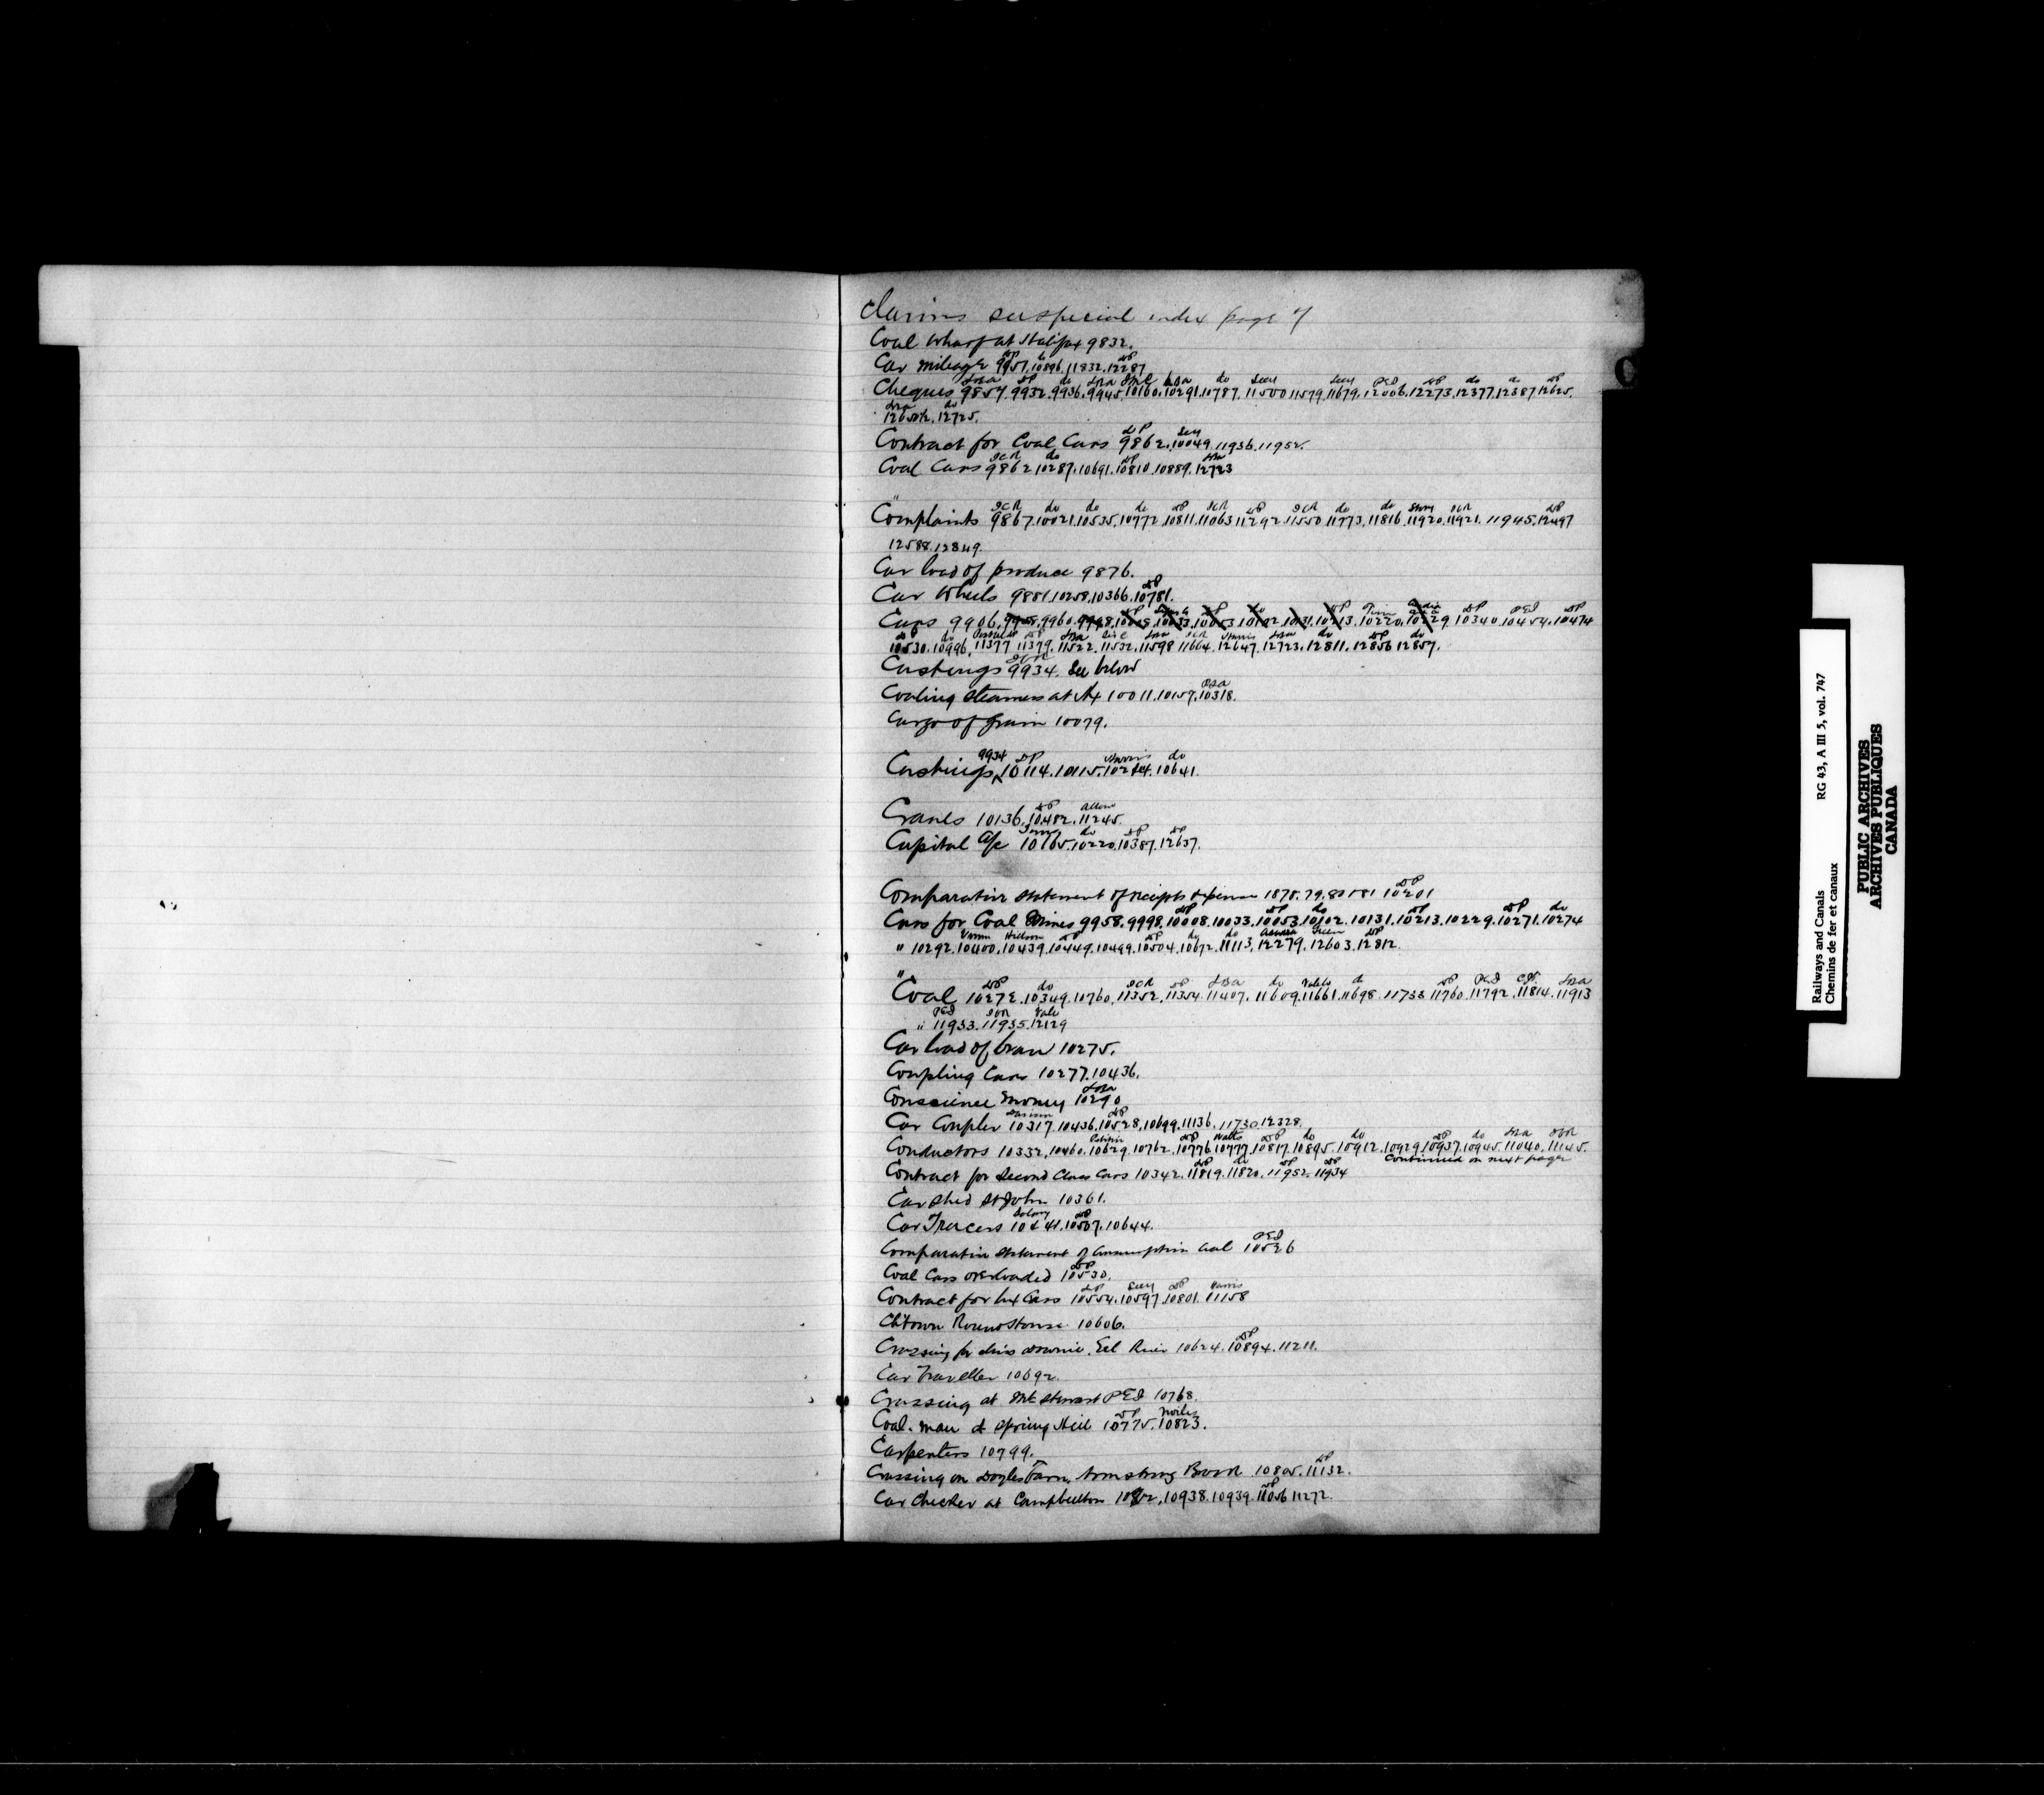 Claims see special index page 7
Coal Wharf at Halifax 9832.
Car mileage 9951. 10896. 11832. 12287
Cheques 9857. 9932. 9936. 9945. 10160. 10291. 11787. 11500 11579. 11679. 12006. 12273. 12377. 12387 12625.
12725.
Contract for Coal Cars 9862. 10049. 11936. 11952.
Coal Cars 9862 10287. 10691. 10810. 10889. 12723
Complaints 9867. 10021. 10535. 10772. 10811. 11063 11292. 11550. 11773. 11816. 11920. 11921. 11945. 12497
12588. 12849.
Car load of produce 9876.
Car Wheels 9881. 10258. 10366. 10781.
Cars 9906. 9958. 9960. 9998. 10033. 10053. 10102. 10131. 10213. 10220. 10229. 10340. 10454. 10474
10530. 10996. 11377 11379. 11522. 11532. 11598 11664. 12647. 12723. 12811. 12856 12857.
Castings 9934. See below
Coaling Steamers at Hx 10011. 10157. 10318.
Cargo of Grain 10079.
9934 DP Harris do
Castings 10114. 10115. 10641.
Cranes 10136. 10482. 11245.
Capital a/c 10165. 10220. 10387. 12637.
Comparative Statement of receipts & expense 1878. 79. 80 & 81 10201
Cars for Coal Mines 9958. 9998. 10008. 10033. 10053. 10102. 10131. 10213. 10229. 10271. 10274
" 10292. 10400. 10439. 10449. 10499. 10504. 10672. 11113. 12279. 12603. 12812.
"Coal 10272. 10349. 10760. 11352. 11354. 11407. 11609. 11661. 11698. 11733 11760. 11792. 11814. 11913
" 11933. 11935. 12129
Car load of bran 10275.
Coupling Cars 10277. 10436.
Conscience Money 10290
Car Coupler 10317. 10436. 10528. 10699. 11136. 11730. 12328.
Conductors 10332. 10460. 10629. 10762. 10776. 10777. 10817. 10895. 10912. 10929. 10937. 10945. 11040. 11145.
Continued on next page
Contract for Second Class Cars 10342. 11819. 11820. 11952. 11934
Car Shed St John 10361.
Car Tracers 10441. 10507. 10644.
Comparative Statement of Consumption Coal 10526
Coal Cars overloaded 10530.
Contract for box Cars 10554. 10597. 10801. 11158
Ch'town Round House 10606.
Crossing for Miss Downie, Eel River 10624. 10894. 11211.
Car Traveller 10692.
Crossing at Mt Stewart PEI 10768.
Coal-man at Spring Hill 10775. 10823.
Carpenters 10799.
Crossing on Doyles Farm, Armstrong Brook 10805. 11132.
Car Checker at Campbellton 10938. 10939. 11056 11272
C
Railways and Canals RG 43, A III 5, vol. 747
Chemins de fer et canaux
PUBLIC ARCHIVES
ARCHIVES PUBLIQUES
CANADA